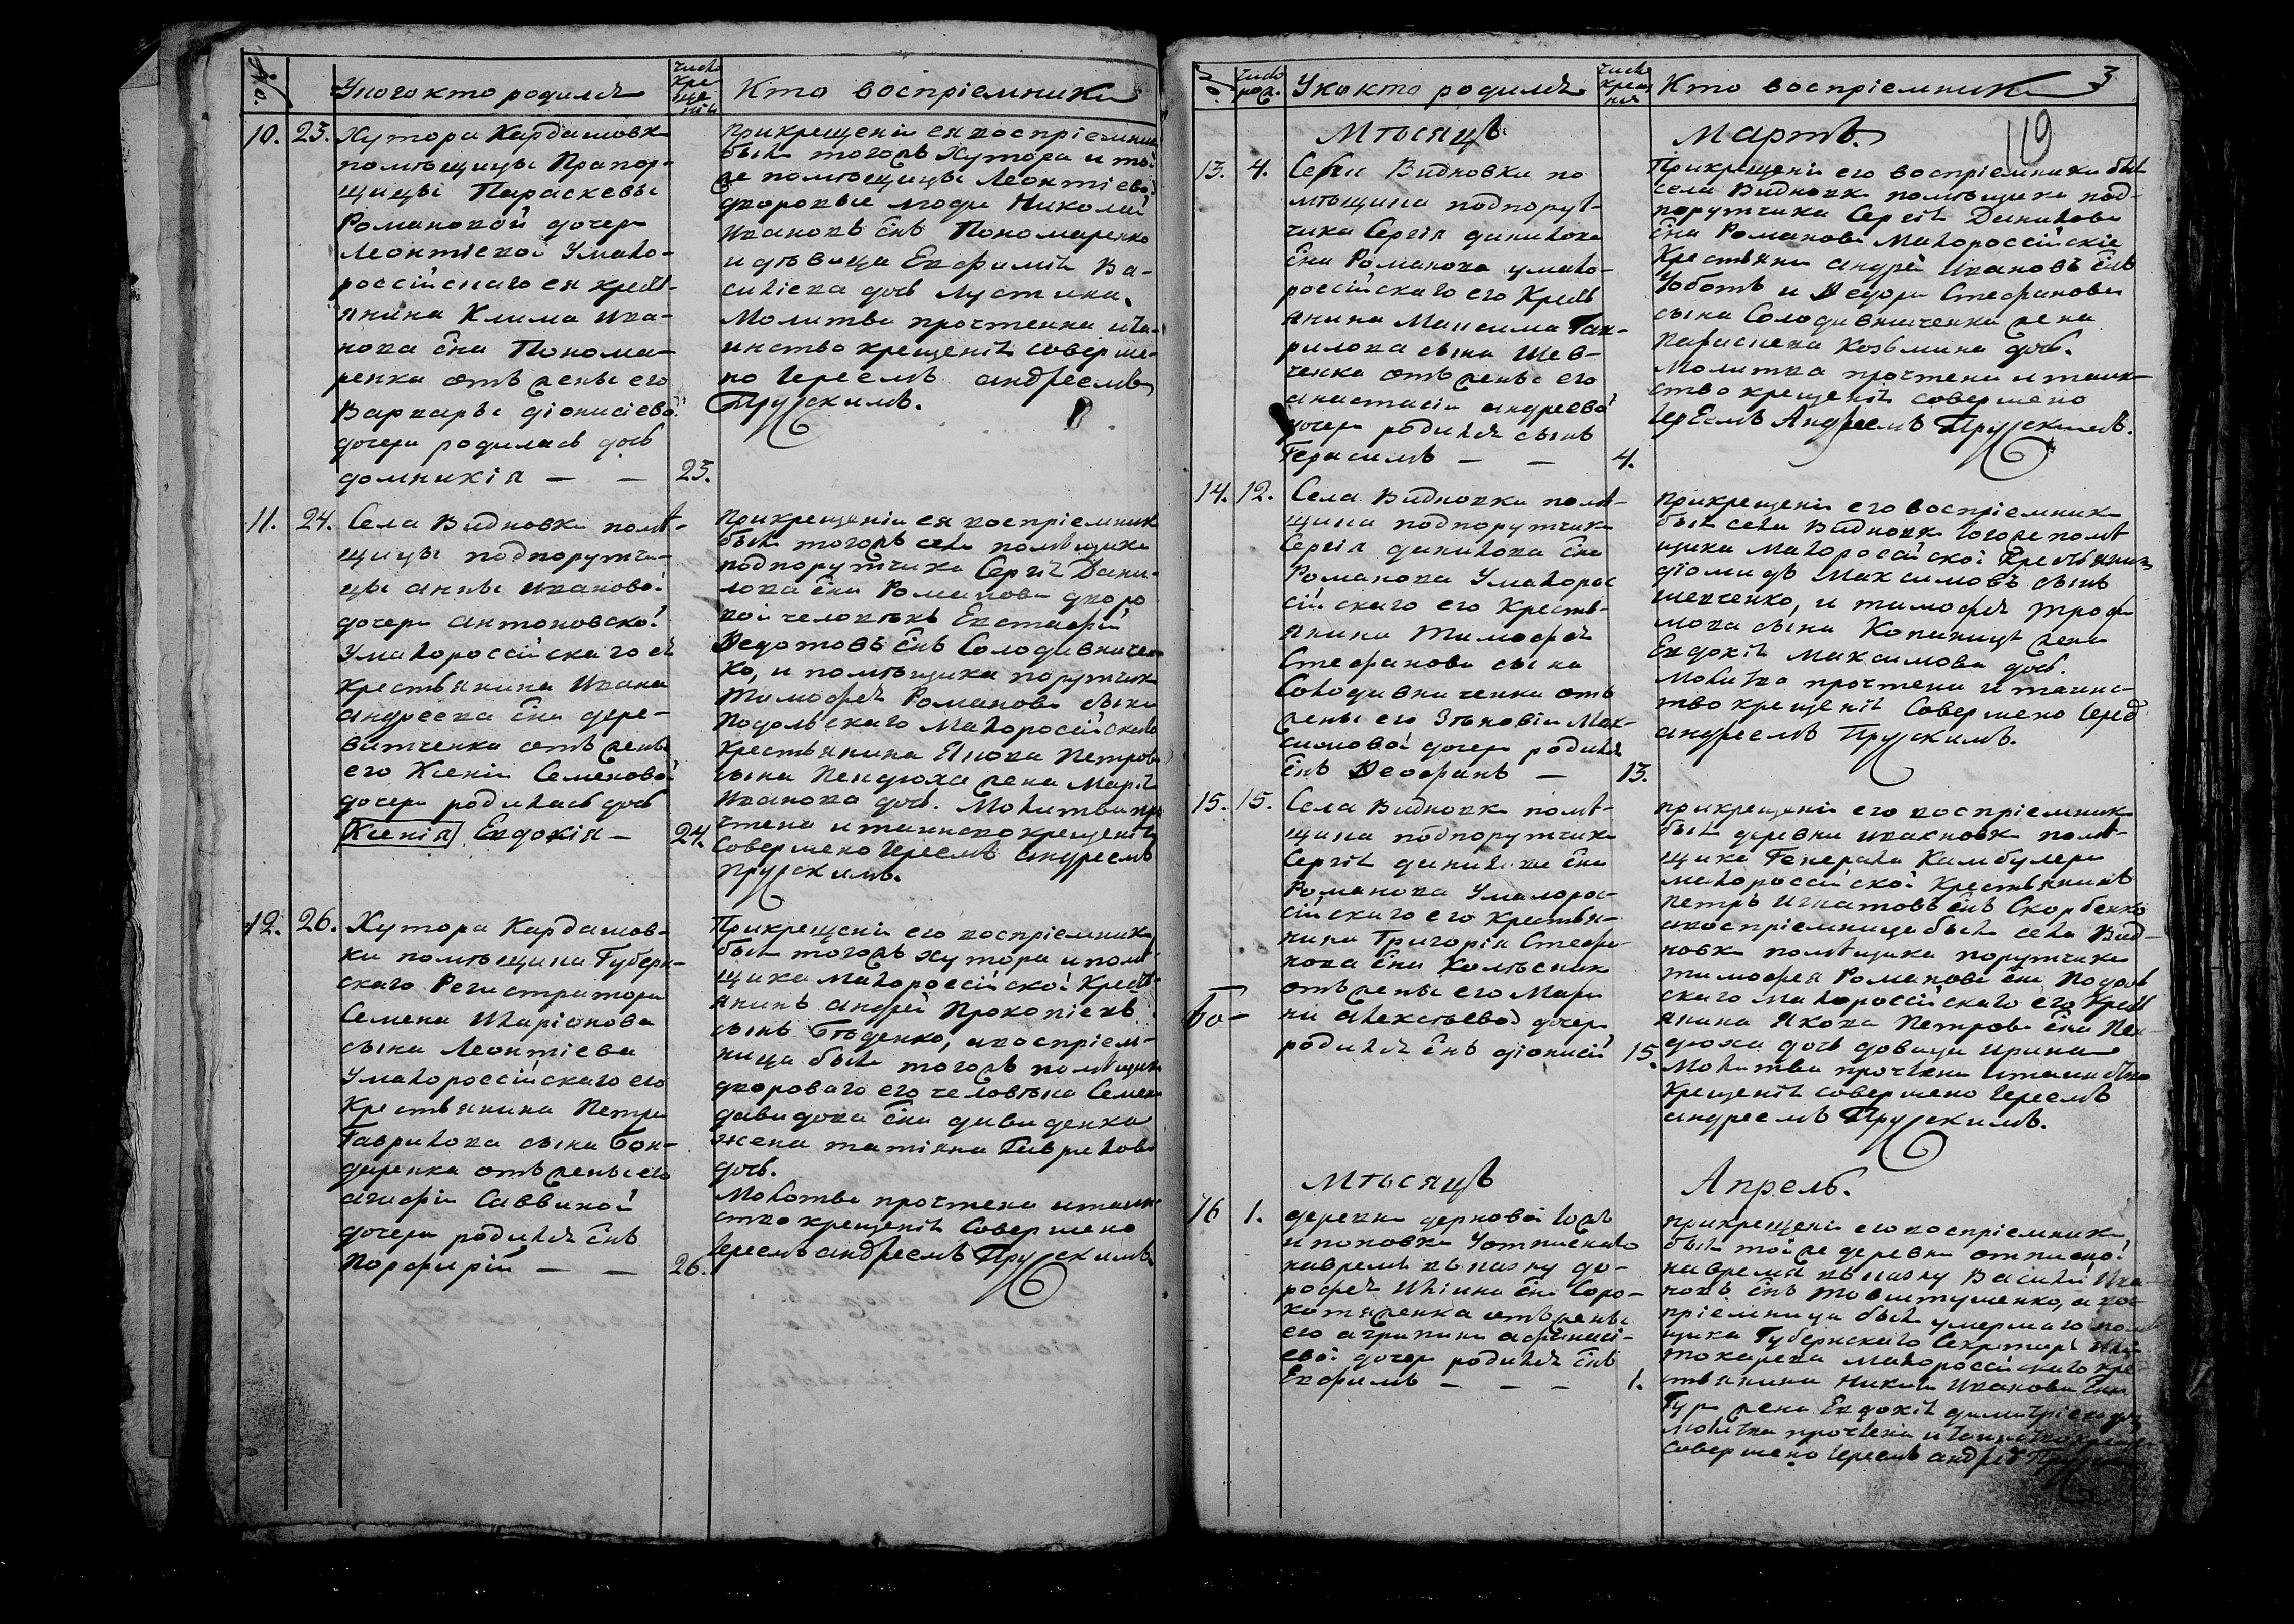 No.
У кого кто родился
число крещенія
Кто воспріемники
10. 23. Хутора Кардашовки
помѣщицы Прапор-
щицы Параскевы
Романовой дочери
Леонтіевой Умало-
россійскаго ея крест-
янина Клима Ива-
нова сна Понома-
ренка отъ жены его
Варвары діонисіевой
дочери родилась дочь
домникія — — 23.
При крещеніи ея воспріемник
были тогожъ Хутора и той
же помѣщицы Леонтіевой
дворовые люди Николай
Ивановъ снъ Пономаренко
и дѣвица Евфимія Ва-
силіева дочь
Молитва прочтенна и та-
инство крещенія соверше-
но Іереемъ андреемъ
Прузскимъ.
11. 24. Села Видновки помѣ-
щицы подпорутчи-
цы анны ивановой
дочери антоновской
Умалороссійскаго ея
крестьянина Ивана
андреева сна дере-
витченка отъ жены
его Ксеніи Семеновой
дочери родилась дочь
Ксенія Евдокія — 24.
При крещеніи ея воспріемник
были тогожъ села помѣщика
подпорутчика Сергія Дани-
лова сна Романова дворо
вой человѣкъ Евстафій
Ѳедотовъ снъ Солодивничен
ко, и помѣщика порутчика
Тимофея Романова сына
Подольскаго Малоросійскаго
крестьянина Якова Петрова
сына Пендюха жена Марія
Иванова дочь. Молитва про
чтена и таинство крещенія
Совершено Іереемъ андреемъ
Прузскимъ.
12. 26. Хутора Кардашов-
ки помѣщика Губерн-
скаго Регистратора
Семена Иларіонова
сына Леонтіева
Умалороссійскаго его
Крестьянина Петра
Гаврилова сына Бон-
даренка отъ жены его
агафіи Саввиной
дочери родился снъ
Порфирій — — 26.
При крещеніи его воспріемник
были тогожъ хутора и помѣ
щика малороссійской Крест-
янинъ андрей Прокопіевъ
сынъ Бѣденко, а воспріем-
ница была тогожъ помѣщика
двороваго его человѣка Семена
давидова сна давиденка
жена татіяна Гаврилова
дочь.
Молитва прочтена и таин-
ство крещенія Совершено
Іереемъ андреемъ Прузскимъ.
число рож.
У кого кто родился
число крещенія
Кто воспріемники
3
119
Мѣсяцъ Мартъ.
13. 4. Села Видновки по
мѣщика подпорут-
чика Сергія данилова
сна Романова умало-
россійскаго его Крест
янина Максима Гав-
рилова сына Шев-
ченка отъ жены его
анастасіи андреевой
дочери родился сынъ
Герасимъ — — 4.
При крещеніи его воспріемники был
села Видновки помѣщика под-
порутчика Сергія Данилова
сна Романова Малороссійскіе
Крестьяни андрей Ивановъ снъ
Чоботъ и Ѳедора Стефанова
сына Солодивниченка жена
Параскева Козьмина дочь.
Молитва прочтена и таин-
ство крещенія совершено
Іереемъ Андреемъ Прузскимъ.
14. 12. Села Видновки помѣ-
щика подпорутчика
Сергія данилова сна
Романова Умалорос
сійскаго его Кресть-
янина Тимофея
Стефанова сына
Солодивниченка отъ
жены его Зѣновіи Мак-
симовой дочери родился
снъ Ѳеофанъ — 13.
При крещеніи его воспріемник
были села Видновки тогоже помѣ
щика Малоросійской Крестьянинъ
діомидъ Максимовъ сынъ
шевченко, и тимофея трофи
мова сына Копаницы жена
Евдокія Максимова дочь.
Молитва прочтена и таинс-
тво крещенія Совершено Іерей
андреемъ Прузскимъ.
15. 15. Села Видновки помѣ-
щика подпорутчика
Сергія данилова сна
Романова Умалорос-
сійскаго его крестья-
нина Григорія Стефа-
нова сна Колѣсника
отъ жены его Мари
ны алексѣевой дочери
родился снъ діонисій 15.
При крещеніи его воспріемник
были деревни ивановки помѣ-
щика Генерала Камбулера
малороссійской Крестьянинъ
петръ Игнатовъ снъ Скорбенко
а воспріемница была села Вид-
новки помѣщика порутчика
тимофея Романова сна Подоль
скаго малороссійскаго его Крест
янина Якова Петрова сна Пен
дюха дочь дѣвица Ирина
Молитва прочтена и таинство
Крещенія совершено Іереемъ
андреемъ Прузскимъ.
Мѣсяцъ Апрель.
16 1. деревни дерновой тожъ
и поповки Уотписнаго
навремя въ казну до-
рофея Ильина сна Соро-
котяженка отъ жены
его агрипины афанасі-
евой дочери родился снъ
Евфимъ — — — 1.
При крещеніи его воспріемник
были тойже деревни отписной
на время въ казну Василій Ива
новъ снъ Товштушенко, а вос
пріемница была умершаго помѣ
щика Губернскаго Секретаря
токарева малороссійскаго кре
стьянина Никиты Иванова сна
жена Евдокія димитріева дочь
Молитва прочтена и таинство
совершено Іереемъ андреемъ